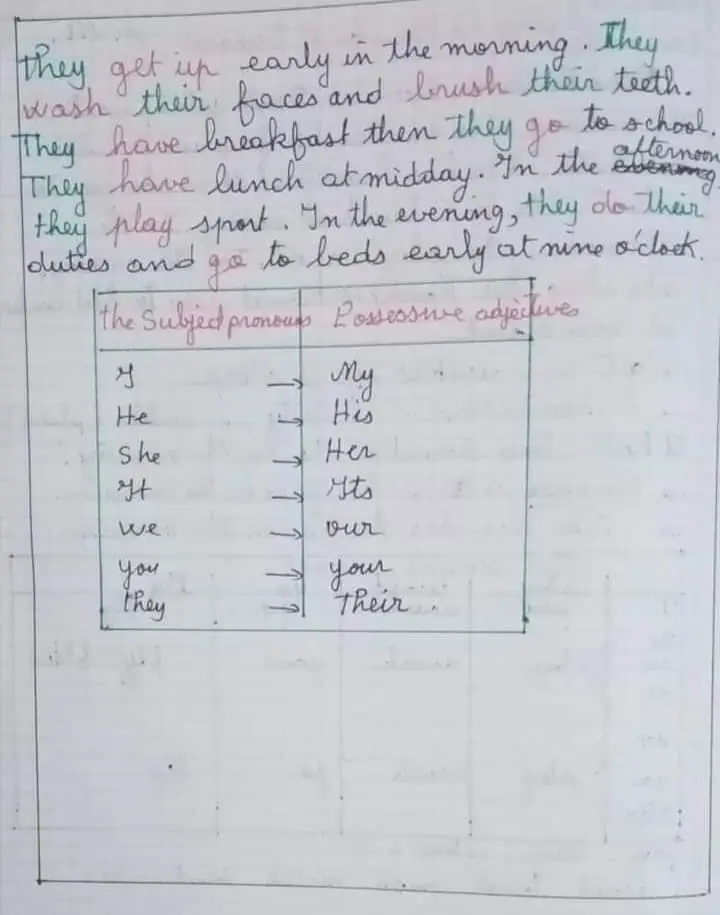 They get up early in the morning. They
wash their faces and brush their teeth.
They have breakfast then they go to school.
They have lunch at midday. In the afternoon
they play sport. In the evening, they do their
duties and go to beds early at nine o'clock.
the Subject pronouns Possessive adjectives
I → My
He → His
She → Her
It → Its
we → our
you → your
they → Their